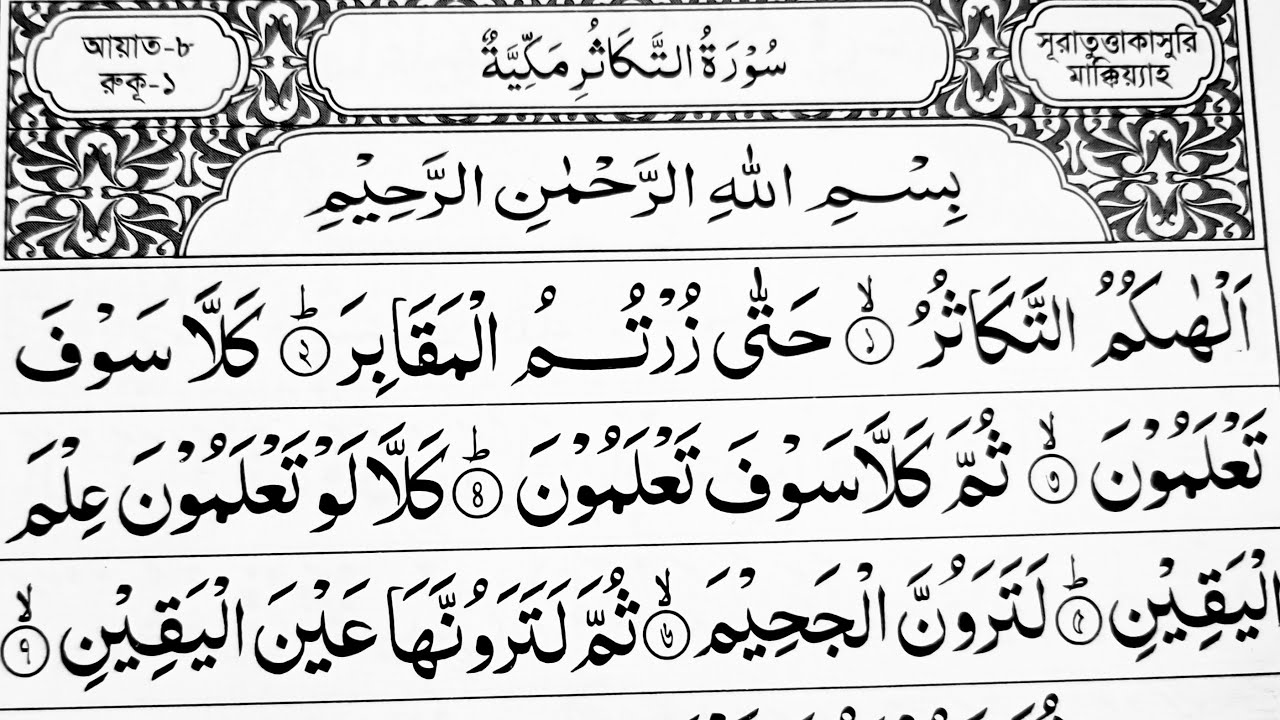 আয়াত-৮
রুকূ-১
سُوْرَةُ التَّكَاثُرِ مَكِّيَّةٌ
সূরাতুত্তাকাসুরি
মাক্কিয়্যাহ
بِسْمِ اللّٰهِ الرَّحْمٰنِ الرَّحِيْمِ
اَلْهٰىكُمُ التَّكَاثُرُ ۙ‏﴿১﴾ حَتّٰى زُرْتُمُ الْمَقَابِرَ ؕ‏﴿২﴾ كَلَّا سَوْفَ
تَعْلَمُوْنَ ۙ‏﴿৩﴾ ثُمَّ كَلَّا سَوْفَ تَعْلَمُوْنَ ؕ‏﴿৪﴾ كَلَّا لَوْ تَعْلَمُوْنَ عِلْمَ
الْيَقِيْنِ ؕ‏﴿৫﴾ لَتَرَوُنَّ الْجَحِيْمَ ۙ‏﴿৬﴾ ثُمَّ لَتَرَوُنَّهَا عَيْنَ الْيَقِيْنِ ۙ‏﴿৭﴾